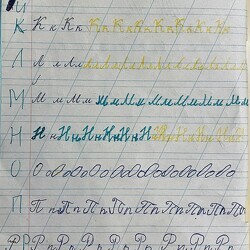 И
К К к К к К к К к К к К к К к К к
Л Л л Л л Л л Л л Л л Л л Л л Л л
М М м М м М м М м М м М м М м М м
Н Н н Н н Н н Н н Н н Н н Н н Н н
О О о О о О о О о О о О о О о О о
П П п П п П п П п П п П п П п П п
Р Р р Р р Р р Р р Р р Р р Р р